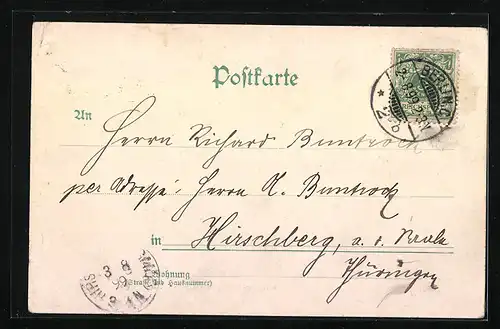 Postkarte
An
Herrn Richard Buntrock
per Adresse: Herrn A. Buntrock
in Hirschberg, a. d. Saale
Thüringen
Wohnung
(Straße und Hausnummer)
BERLIN, C.
* 2 b